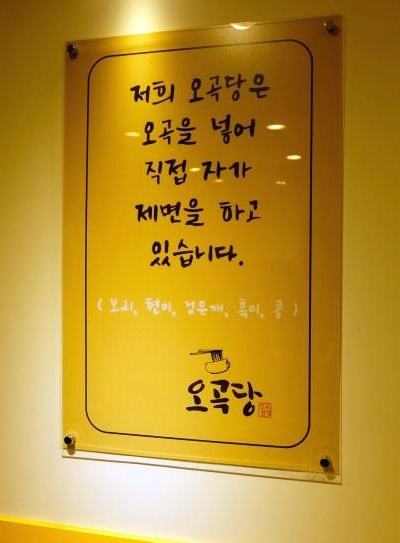 저희 오곡당은
오곡을 넣어
직접 자가
제면을 하고
있습니다.
( 보리, 현미, 검은깨, 흑미, 콩 )
오곡당